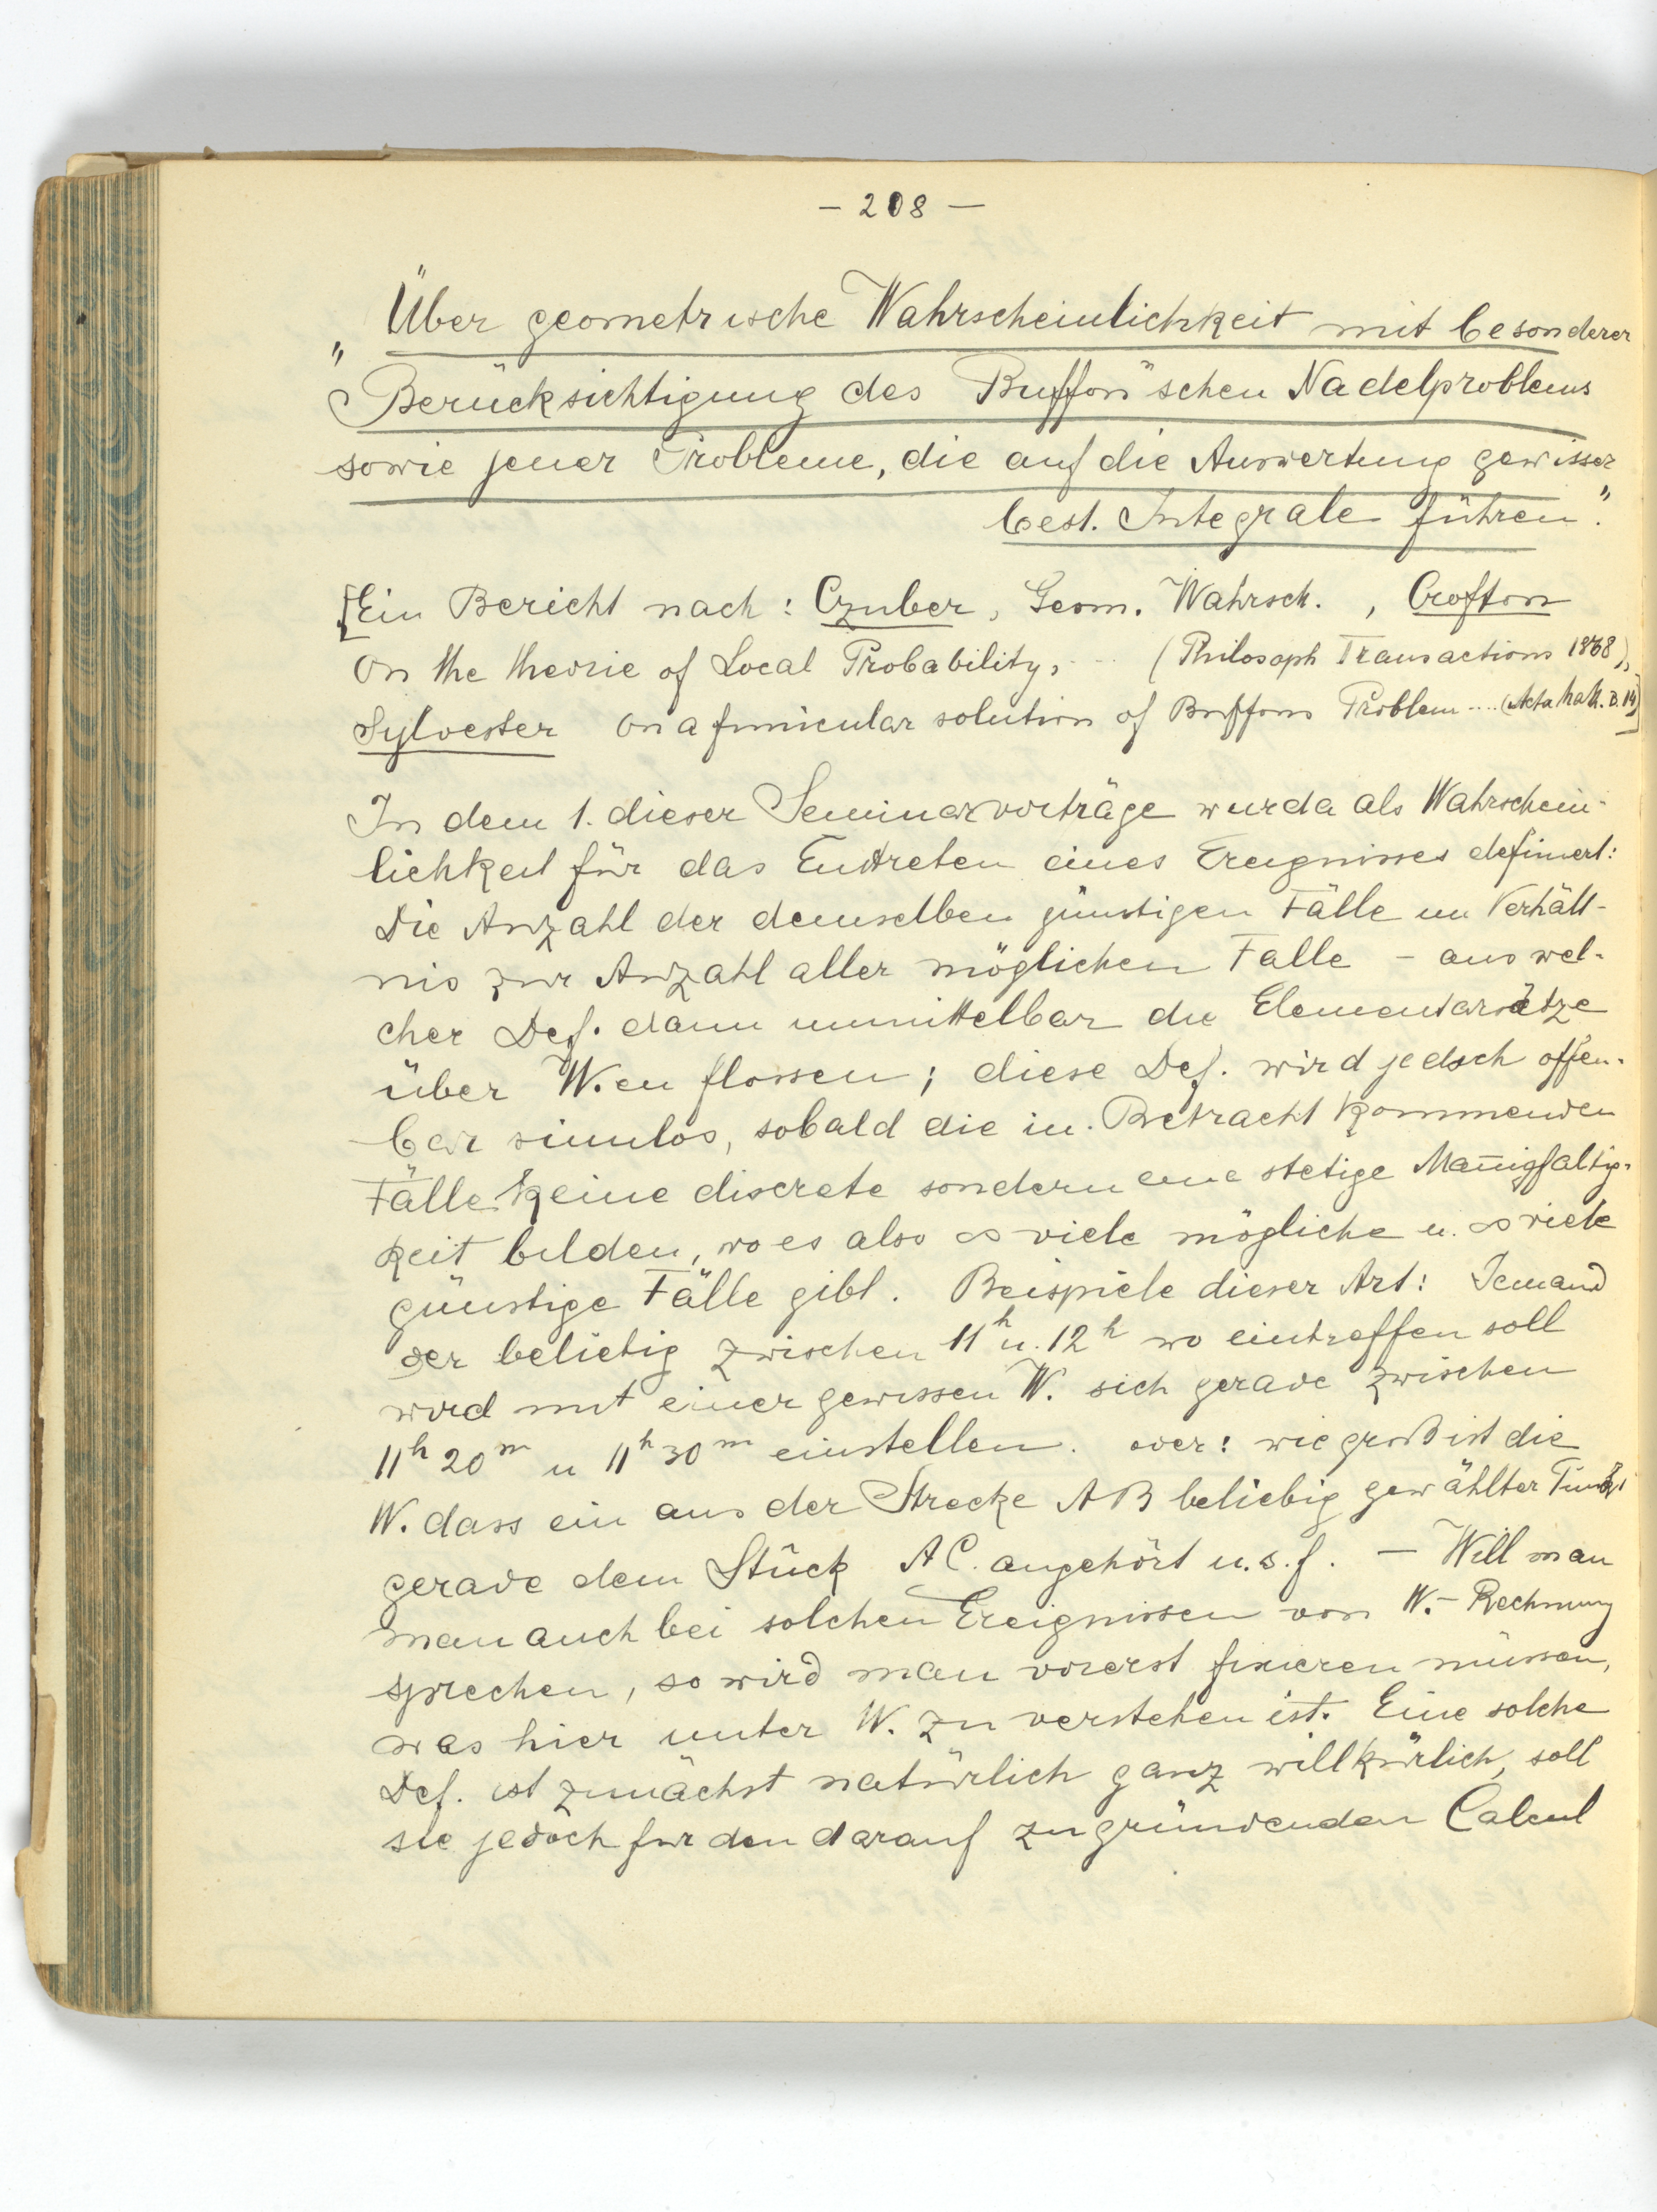 - 208 -
„Über geometrische Wahrscheinlichkeit mit besonderer
Berücksichtigung des Buffon'schen Nadelproblems
sowie jener Probleme, die auf die Auswertung gewisser
best. Integrale führen."
[Ein Bericht nach: Czuber, Geom. Wahrsch. , Crofton
On the theorie of Local Probability, ... (Philosoph Transactions 1868),
Sylvester On a funicular solution of Buffons Problem .... (Acta Math. B. 14)]
In dem 1. dieser Seminarvorträge wurda als Wahrschein-
lichkeit für das Eintreten eines Ereignisses definiert:
Die Anzahl der demselben günstigen Fälle im Verhält-
nis zur Anzahl aller möglichen Falle - aus wel-
cher Def. dann unmittelbar die Elementarsätze
über W.en flossen; diese Def. wird jedoch offen-
bar sinnlos, sobald die in Betracht kommenden
Fälle keine discrete sondern eine stetige Man̄igfaltig-
keit bilden, wo es also ∞ viele mögliche u. ∞ viele
günstige Fälle gibt. Beispiele dieser Art: Jemand
der beliebig zwischen 11h u. 12h wo eintreffen soll
wird mit einer gewissen W. sich gerade zwischen
11h 20m u 11h 30m einstellen. oder: wie groß ist die
W. dass ein aus der Strecke AB beliebig gewählter Punkt
gerade dem Stück AC. angehört u.s.f. - Will man
man auch bei solchen Ereignissen von W.- Rechnung
sprechen, so wird man vorerst fixieren müssen,
was hier unter W. zu verstehen ist. Eine solche
Def. ist zunächst natürlich ganz willkürlich, soll
sie jedoch für den darauf zu gründenden Calcul